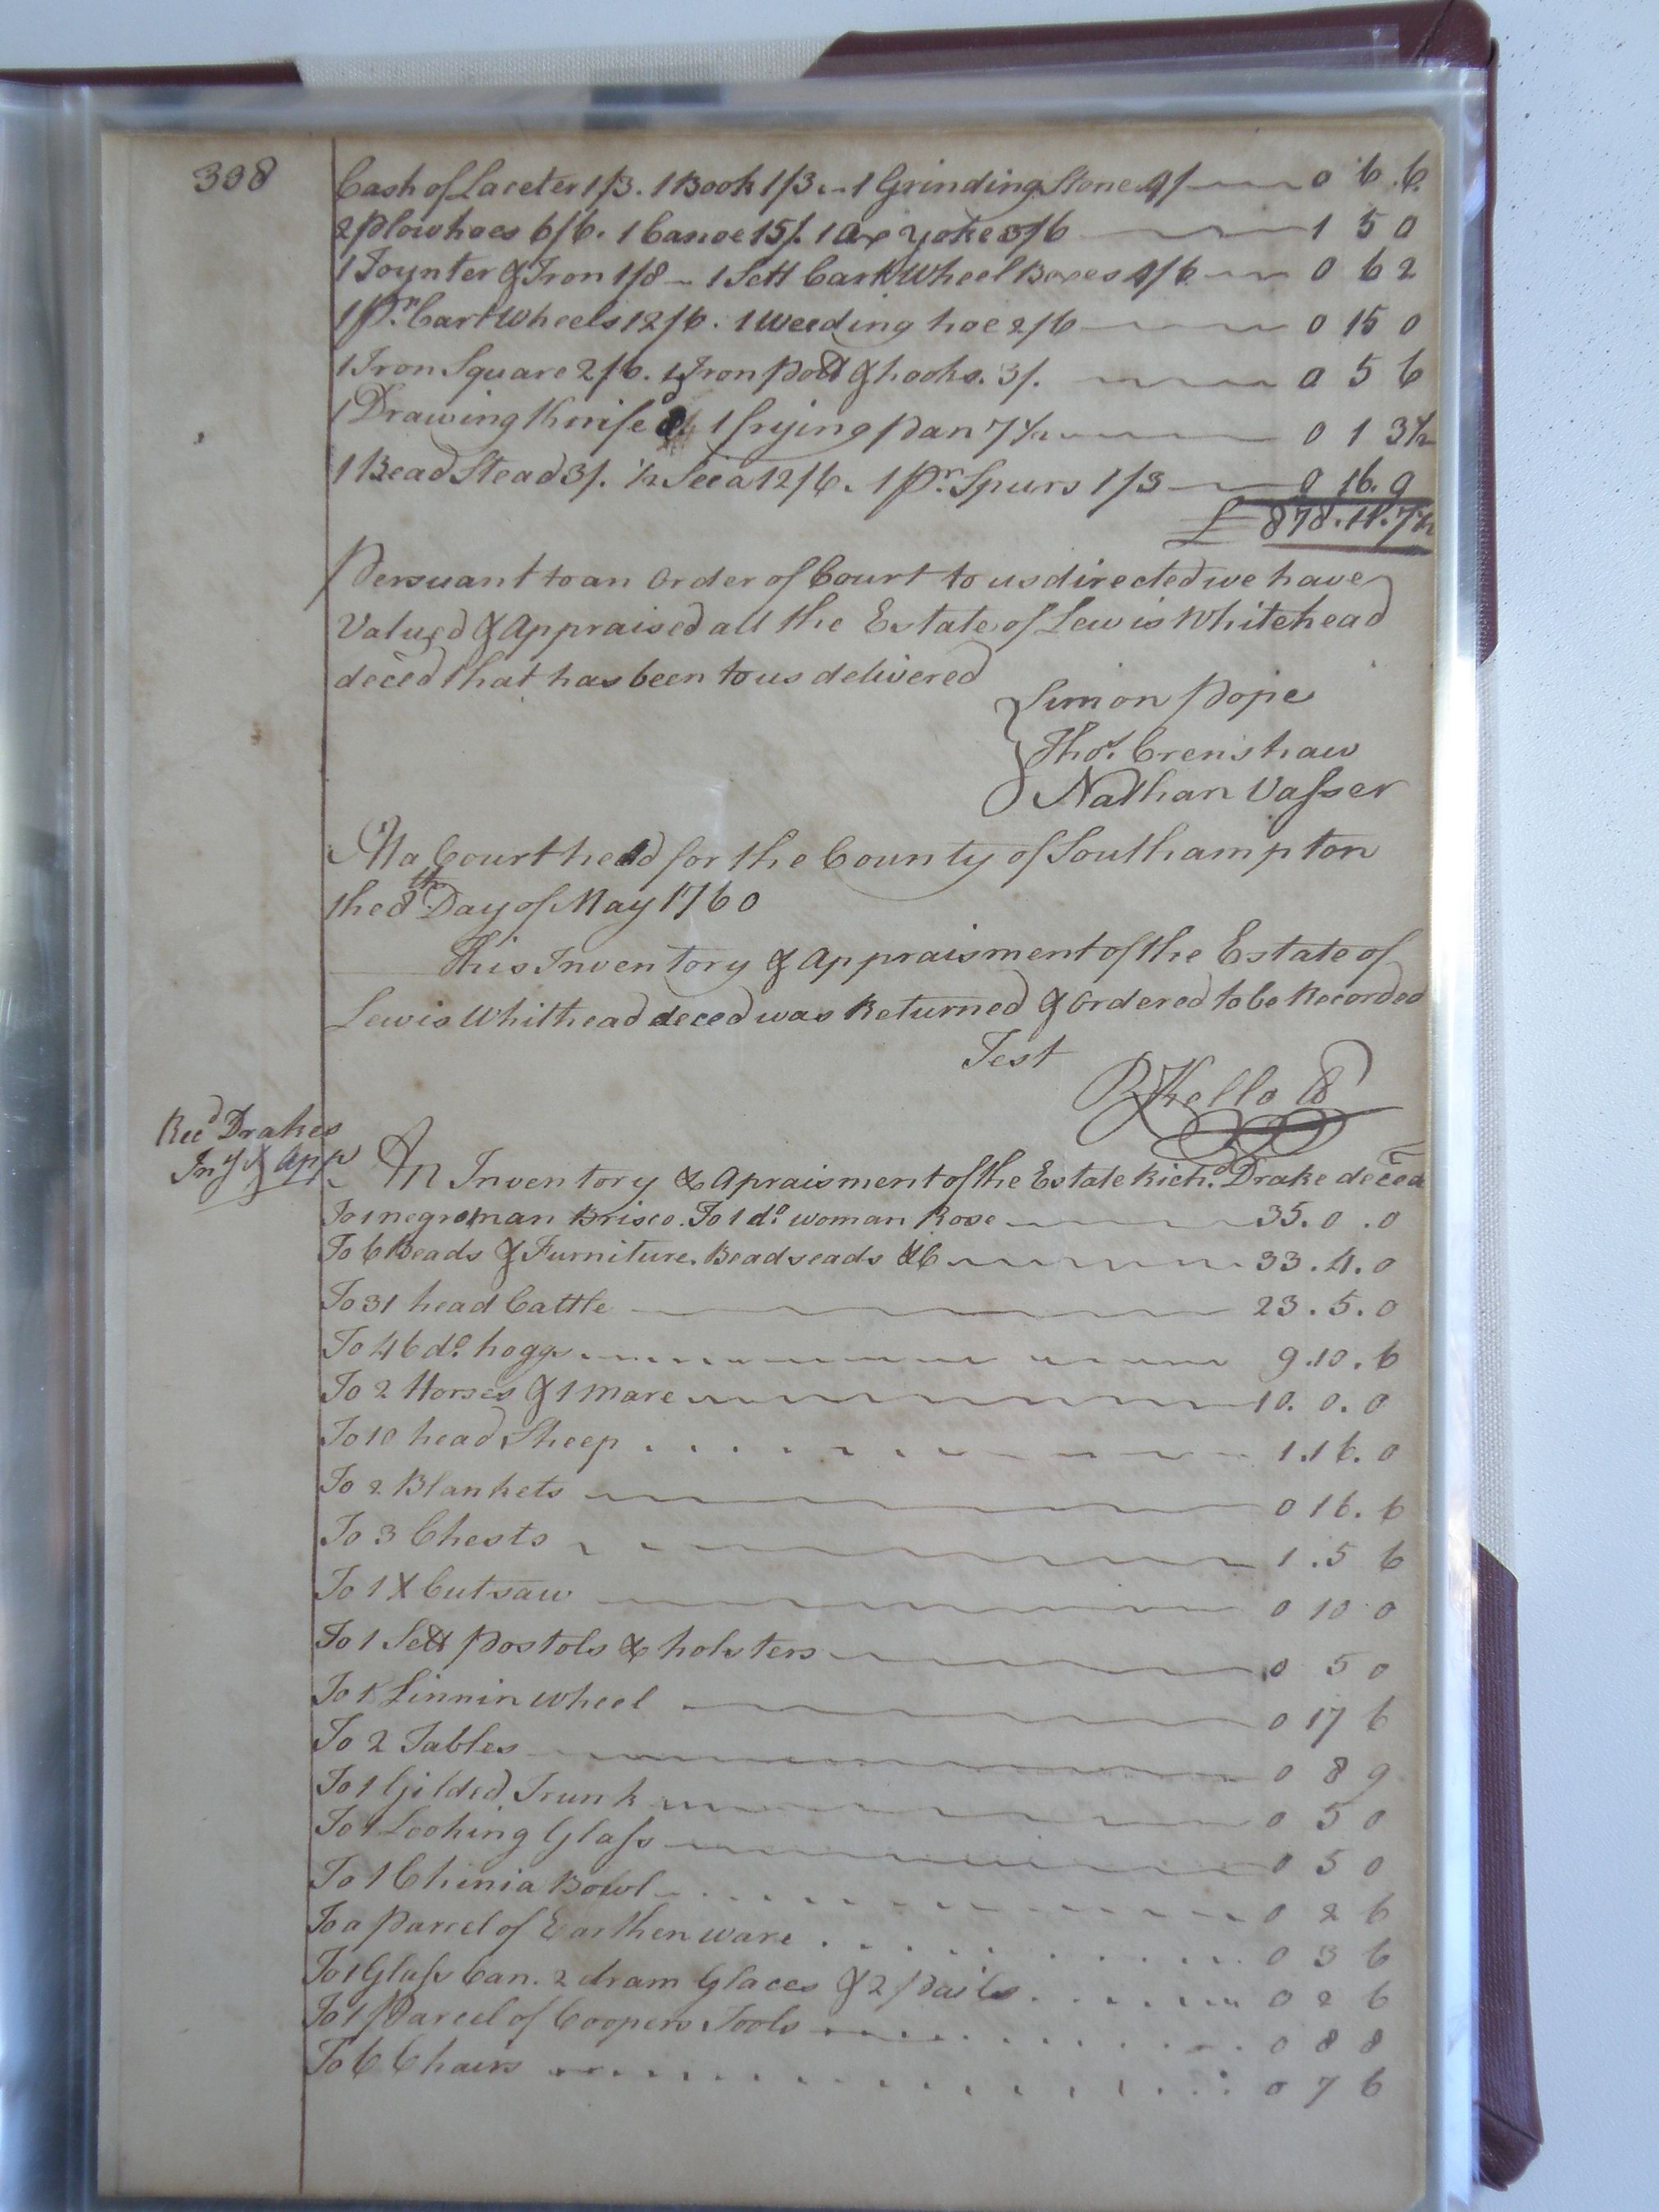 338
Cash of Laceter 1/3. 1 Book 1/3 .. 1 Grinding Stone 4/ 0 6 6
2 Plowhoes 6/6. 1 Canoe 15/. 1 Ax Yoke 3/6 1 5 0
1 Joynter & Iron 1/8 - 1 Sett Cart Wheel Boxes 4/6 0 6 2
1 Pr. Cart Wheels 12/6. 1 Weeding hoe 2/6 0 15 0
1 Iron Square 2/6. 1 Iron Pott & hooks. 3/. 0 5 6
1 Drawing Knife 1 frying Pan 7½ 0 1 3½
1 Bead Stead 3/. ½ 12/6. 1 Pr. Spurs 1/3 0 16. 9
£ 878.11.7½
Persuant to an Order of Court to us directed we have
Valued & Appraised all the Estate of Lewis Whitehead
deced that has been to us delivered
Simon Pope
Thos. Crenshaw
Nathan Vasser
At a Court held for the County of Southampton
the 8th Day of May 1760
This Inventory & Appraisment of the Estate of
Lewis Whithead deced was Returned & Ordered to be Recorded
Test
R Kello
Ricd Drakes
Iny & App
An Inventory & Apraisment of the Estate Richd. Drake deced
To 1 negro man Brisco. To 1 do. woman Rose 35. 0 . 0
To 6 Beads & Furniture. Beadseads &C 33 . 4 . 0
To 31 head Cattle 23 . 5 . 0
To 46 do. hoggs 9 .10 . 6
To 2 Horses & 1 Mare 10. 0. 0
To 10 head Sheep 1.16. 0
To 2 Blankets 0 16. 6
To 3 Chests 1 . 5 6
To 1 X Cutsaw 0 10 0
To 1 Sett Postols & holsters 0 5 0
To 1 Linnin wheel 0 17 6
To 2 Tables 0 8 9
To 1 Gilded Trunk 0 5 0
To 1 Looking Glass 0 5 0
To 1 Chinia Bowl 0 2 6
To a Parcel of Earthen ware 0 3 6
To 1 Glass Can. 2 dram Glaces & 2 Pails 0 2 6
To 1 Parcel of Coopers Tools 0 8 8
To 6 Chairs 0 7 6